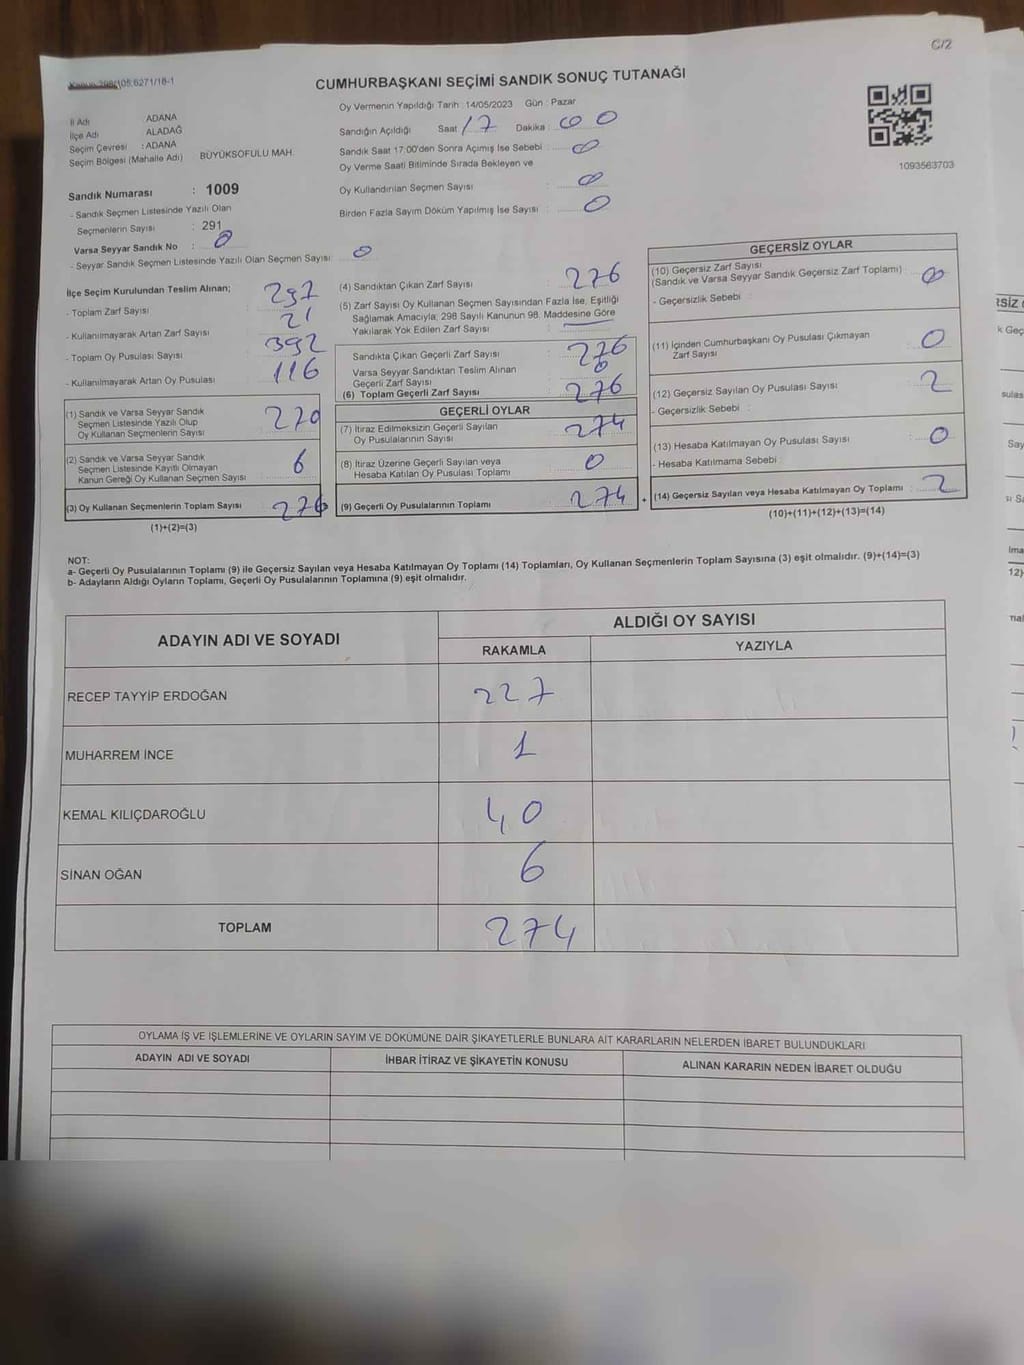 C/2
Kanun 298/105;6271/18-1
CUMHURBAŞKANI SEÇİMİ SANDIK SONUÇ TUTANAĞI
Oy Vermenin Yapıldığı Tarih : 14/05/2023 Gün : Pazar
İl Adı ADANA
İlçe Adı ALADAĞ
Seçim Çevresi : ADANA
Seçim Bölgesi (Mahalle Adı) BÜYÜKSOFULU MAH.
Sandığın Açıldığı Saat 17 Dakika : 00
Sandık Saat 17:00'den Sonra Açımış İse Sebebi : 0
Oy Verme Saati Bitiminde Sırada Bekleyen ve
Oy Kullandırılan Seçmen Sayısı : 0
Birden Fazla Sayım Döküm Yapılmış İse Sayısı : 0
1093563703
Sandık Numarası : 1009
- Sandık Seçmen Listesinde Yazılı Olan
Seçmenlerin Sayısı : 291
Varsa Seyyar Sandık No : 0
- Seyyar Sandık Seçmen Listesinde Yazılı Olan Seçmen Sayısı : 0
İlçe Seçim Kurulundan Teslim Alınan;
- Toplam Zarf Sayısı 297
- Kullanılmayarak Artan Zarf Sayısı 21
- Toplam Oy Pusulası Sayısı 392
- Kullanılmayarak Artan Oy Pusulası 116
(1) Sandık ve Varsa Seyyar Sandık
Seçmen Listesinde Yazılı Olup
Oy Kullanan Seçmenlerin Sayısı 270
(2) Sandık ve Varsa Seyyar Sandık
Seçmen Listesinde Kayıtlı Olmayan
Kanun Gereği Oy Kullanan Seçmen Sayısı 6
(3) Oy Kullanan Seçmenlerin Toplam Sayısı 276
(1)+(2)=(3)
(4) Sandıktan Çıkan Zarf Sayısı : 276
(5) Zarf Sayısı Oy Kullanan Seçmen Sayısından Fazla İse, Eşitliği
Sağlamak Amacıyla; 298 Sayılı Kanunun 98. Maddesine Göre
Yakılarak Yok Edilen Zarf Sayısı :
Sandıkta Çıkan Geçerli Zarf Sayısı : 276
Varsa Seyyar Sandıktan Teslim Alınan
Geçerli Zarf Sayısı : 0
(6) Toplam Geçerli Zarf Sayısı : 276
GEÇERLİ OYLAR
(7) İtiraz Edilmeksizin Geçerli Sayılan
Oy Pusulalarının Sayısı : 274
(8) İtiraz Üzerine Geçerli Sayılan veya
Hesaba Katılan Oy Pusulası Toplamı : 0
(9) Geçerli Oy Pusulalarının Toplamı : 274
GEÇERSİZ OYLAR
(10) Geçersiz Zarf Sayısı
(Sandık ve Varsa Seyyar Sandık Geçersiz Zarf Toplamı) : 0
- Geçersizlik Sebebi :
(11) İçinden Cumhurbaşkanı Oy Pusulası Çıkmayan
Zarf Sayısı : 0
(12) Geçersiz Sayılan Oy Pusulası Sayısı : 2
- Geçersizlik Sebebi :
(13) Hesaba Katılmayan Oy Pusulası Sayısı : 0
- Hesaba Katılmama Sebebi :
+ (14) Geçersiz Sayılan veya Hesaba Katılmayan Oy Toplamı : 2
(10)+(11)+(12)+(13)=(14)
NOT:
a- Geçerli Oy Pusulalarının Toplamı (9) ile Geçersiz Sayılan veya Hesaba Katılmayan Oy Toplamı (14) Toplamları, Oy Kullanan Seçmenlerin Toplam Sayısına (3) eşit olmalıdır. (9)+(14)=(3)
b- Adayların Aldığı Oyların Toplamı, Geçerli Oy Pusulalarının Toplamına (9) eşit olmalıdır.
ADAYIN ADI VE SOYADI ALDIĞI OY SAYISI
RAKAMLA YAZIYLA
RECEP TAYYİP ERDOĞAN 227
MUHARREM İNCE 1
KEMAL KILIÇDAROĞLU 40
SİNAN OĞAN 6
TOPLAM 274
OYLAMA İŞ VE İŞLEMLERİNE VE OYLARIN SAYIM VE DÖKÜMÜNE DAİR ŞİKAYETLERLE BUNLARA AİT KARARLARIN NELERDEN İBARET BULUNDUKLARI
ADAYIN ADI VE SOYADI İHBAR İTİRAZ VE ŞİKAYETİN KONUSU ALINAN KARARIN NEDEN İBARET OLDUĞU